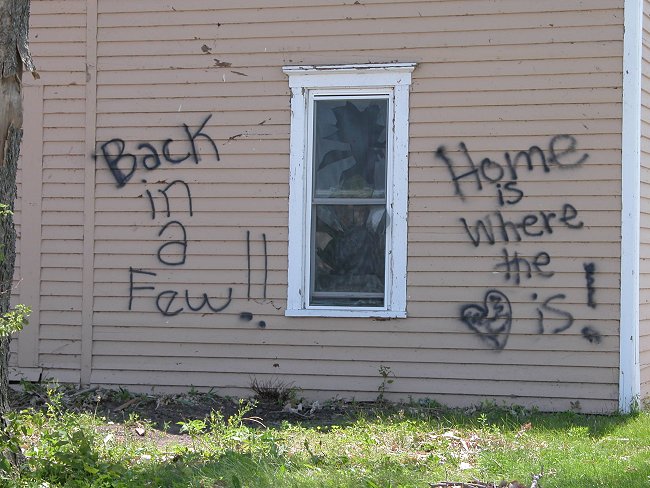 Back
in
a
Few!!
Home
is
Where
the
is!